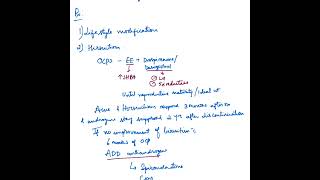 Rx
1) Lifestyle modification
2) Hirsutism
OCPs - EE + Drospirenone/
Desogestrel
↑SHBG
⊖ LH
Until reproductive maturity/ideal wt
Acne & Hirsutism respond 3 months after Rx
& androgens stay suppressed 2 yr after discontinuation
If no improvement of hirsutism
6 weeks of OCP
ADD antiandrogen
↳ Spironolactone